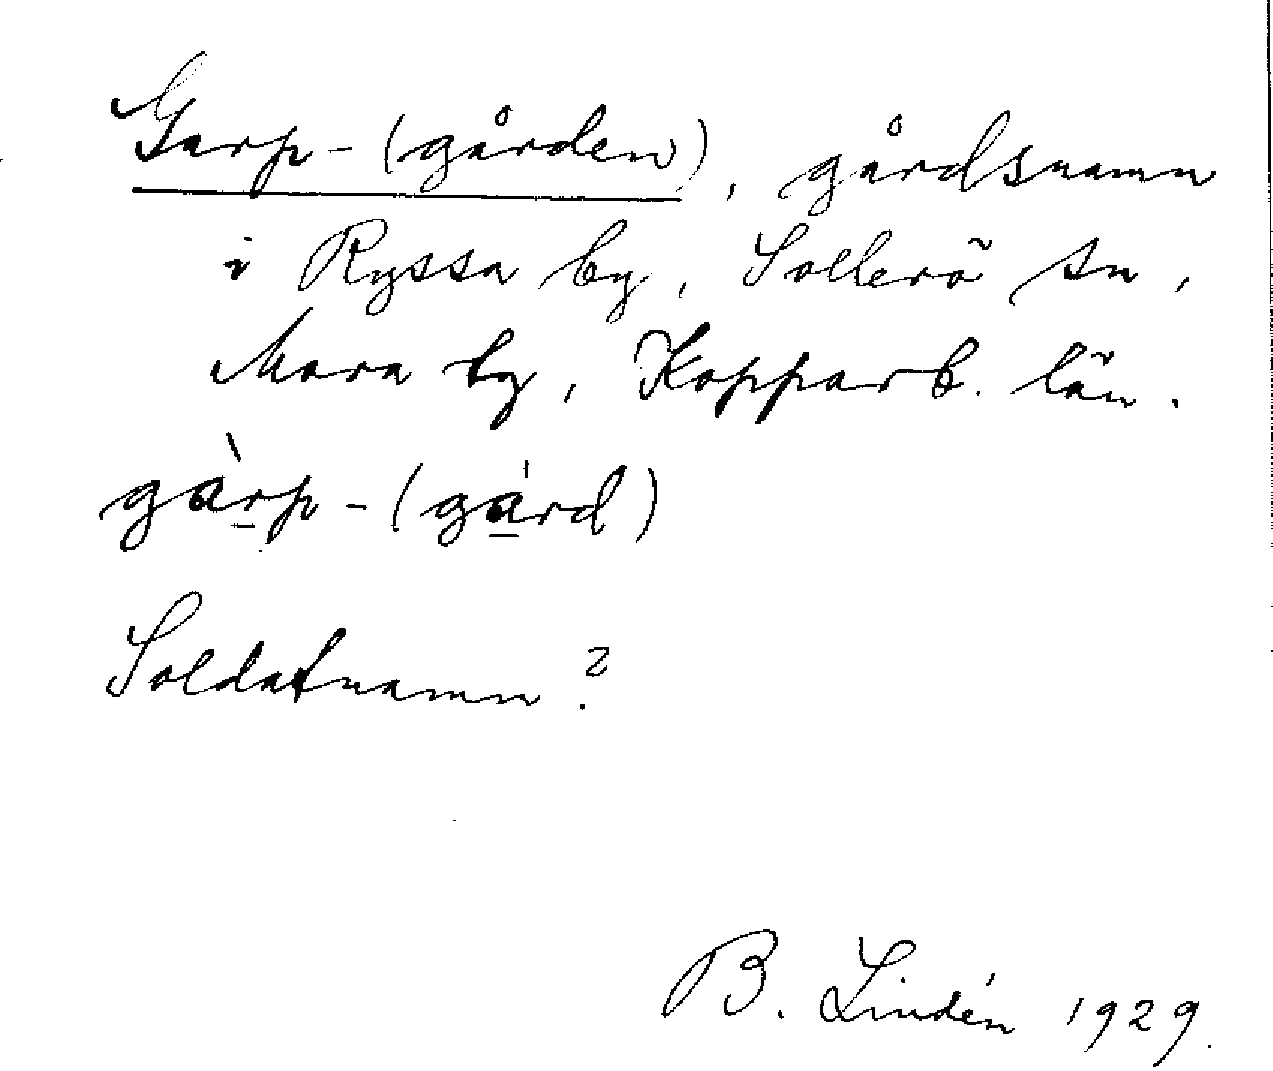 Garp-(gården), gårdsnamn
i Ryssa by, Sollerö sn,
Mora by, Kopparb. län.
gàrp-(gárd)
Soldatnamn?
B. Lindén 1929.